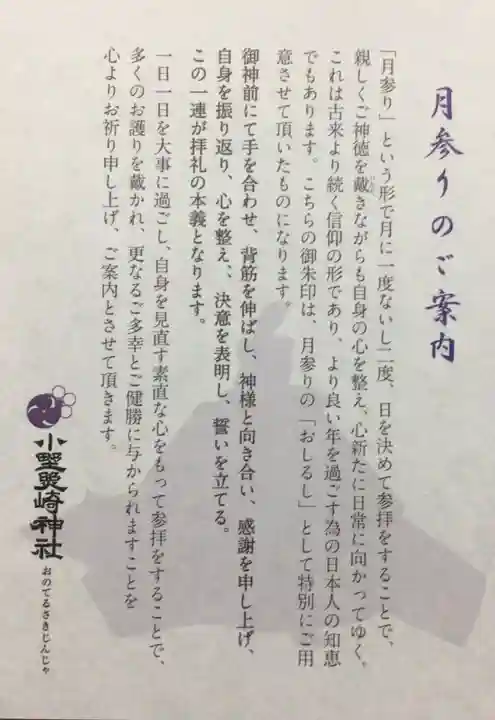 月参りのご案内
「月参り」という形で月に一度ないし二度、日を決めて参拝をすることで、
親しくご神徳を戴きながらも自身の心を整え、心新たに日常に向かってゆく。
これは古来より続く信仰の形であり、より良い年を過ごす為の日本人の知恵
でもあります。こちらの御朱印は、月参りの「おしるし」として特別にご用
意させて頂いたものになります。
御神前にて手を合わせ、背筋を伸ばし、神様と向き合い、感謝を申し上げ、
自身を振り返り、心を整え、、決意を表明し、誓いを立てる。
この一連が拝礼の本義となります。
一日一日を大事に過ごし、自身を見直す素直な心をもって参拝をすることで、
多くのお護りを戴かれ、更なるご多幸とご健勝に与かられますことを
心よりお祈り申し上げ、ご案内とさせて頂きます。
小野照崎神社
おのてるさきじんじゃ